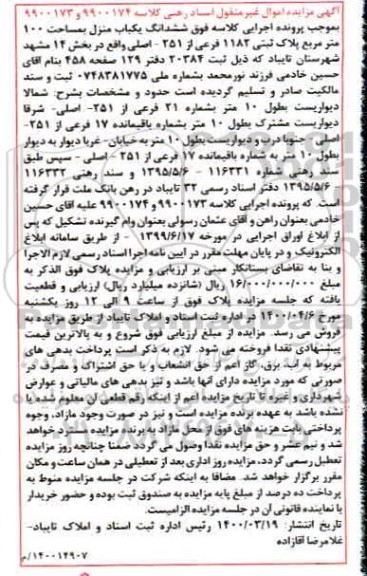 آگهی مزایده اموال غیرمنقول اسناد رهنی کلاسه ۹۹۰۰۱۷۴ و ۹۹۰۰۱۷۳
بموجب پرونده اجرایی کلاسه فوق ششدانگ یکباب منزل بمساحت ۱۰۰
متر مربع پلاک ثبتی ۱۱۸۲ فرعی از ۲۵۱ - اصلی واقع در بخش ۱۴ مشهد
شهرستان تایباد که ذیل ثبت ۲۰۳۸۴ دفتر ۱۲۹ صفحه ۴۵۸ بنام اقای
حسین خادمی فرزند نورمحمد بشماره ملی ۰۷۴۸۳۸۱۷۷۵ ثبت و سند
مالکیت صادر و تسلیم گردیده است حدود و مشخصات بشرح: شمالا
دیواریست بطول ۱۰ متر بشماره ۲۱ فرعی از ۲۵۱- اصلی- شرقا
دیواریست مشترک بطول ۱۰ متر بشماره باقیمانده ۱۷ فرعی از ۲۵۱-
اصلی - جنوبا درب و دیواریست بطول ۱۰ متر به خیابان- غربا دیوار به دیوار
بطول ۱۰ متر به شماره باقیمانده ۱۷ فرعی از ۲۵۱ - اصلی - سپس طبق
سند رهنی شماره ۱۱۶۳۳۱ - ۱۳۹۵/۵/۶ و سند رهنی ۱۱۶۳۳۲
- ۱۳۹۵/۵/۶ دفتر اسناد رسمی ۳۲ تایباد در رهن بانک ملت قرار گرفته
است که پرونده اجرایی کلاسه ۹۹۰۰۱۷۳ و ۹۹۰۰۱۷۴ علیه اقای حسین
خادمی بعنوان راهن و آقای عثمان رسولی بعنوان وام گیرنده تشکیل که پس
از ابلاغ اوراق اجرایی در مورخه ۱۳۹۹/۶/۱۷ - از طریق سامانه ابلاغ
الکترونیک و در پایان مهلت مقرر در آیین نامه اجرا اسناد رسمی لازم الاجرا
و بنا به تقاضای بستانکار مبنی بر ارزیابی و مزایده پلاک فوق الذکر به
مبلغ ۱۶/۰۰۰/۰۰۰/۰۰۰ ریال (شانزده میلیارد ریال) ارزیابی و قطعیت
یافته که جلسه مزایده پلاک فوق از ساعت ۹ الی ۱۲ روز یکشنبه
مورخ ۱۴۰۰/۰۴/۶ در اداره ثبت اسناد و املاک تایباد از طریق مزایده به
فروش می رسد. مزایده از مبلغ ارزیابی فوق شروع و به بالاترین قیمت
پیشنهادی نقدا فروخته می شود. لازم به ذکر است پرداخت بدهی های
مربوط به آب، برق، گاز اعم از حق انشعاب و یا حق اشتراک و مصرف در
صورتی که مورد مزایده دارای آنها باشد و نیز بدهی های مالیاتی و عوارض
شهرداری و غیره تا تاریخ مزایده اعم از اینکه رقم قطعی آن معلوم شده یا
نشده باشد به عهده برنده مزایده است و نیز در صورت وجود مازاد، وجوه
پرداختی بابت هزینه های فوق از محل مازاد به برنده مزایده مسترد خواهد
شد و نیم عشر و حق مزایده نقدا وصول می گردد ضمنا چنانچه روز مزایده
تعطیل رسمی گردد، مزایده روز اداری بعد از تعطیلی در همان ساعت و مکان
مقرر برگزار خواهد شد. مضافا به اینکه شرکت در جلسه مزایده منوط به
پرداخت ده درصد از مبلغ پایه مزایده به صندوق ثبت بوده و حضور خریدار
یا نماینده قانونی آن در جلسه مزایده الزامیست.
تاریخ انتشار: ۱۴۰۰/۰۳/۱۹ رئیس اداره ثبت اسناد و املاک تایباد-
غلامرضا آقازاده
۱۴۰۰۱۴۹۰۷/م